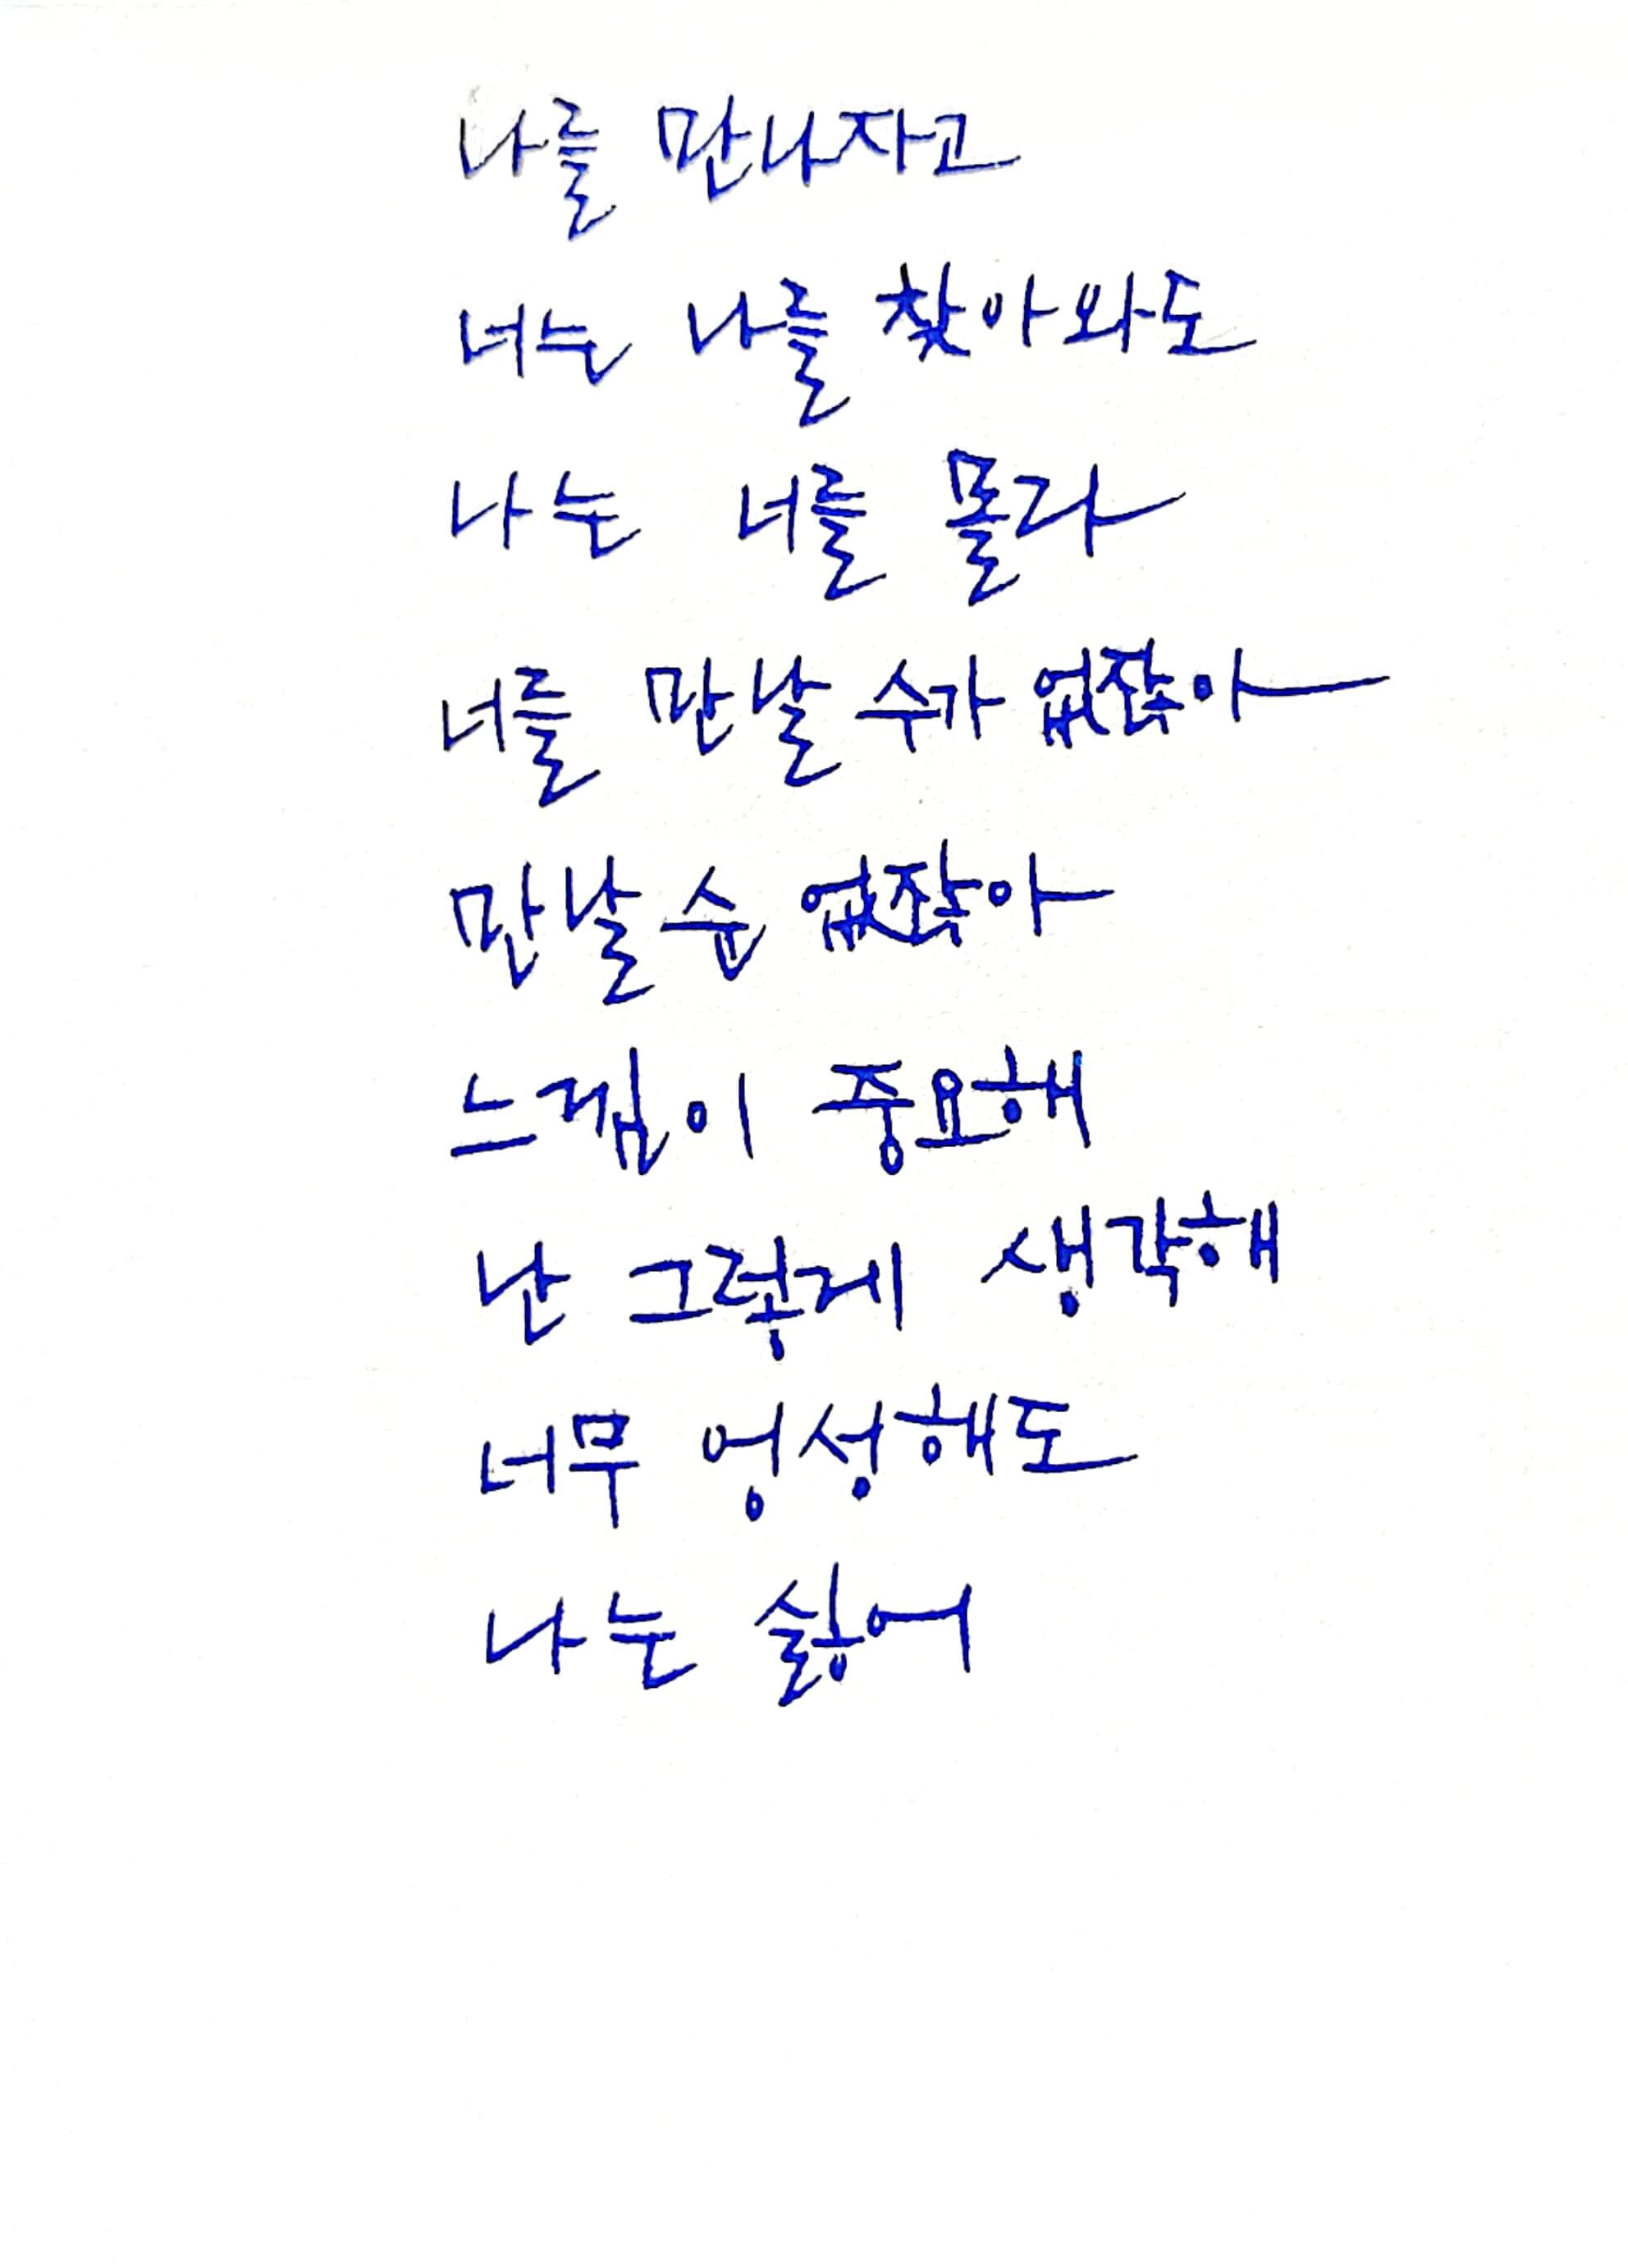 나를 만나자고
너는 나를 찾아와도
나는 너를 몰라
너를 만날 수가 없잖아
만날 순 없잖아
느낌이 중요해
난 그렇게 생각해
너무 엉성해도
나는 싫어